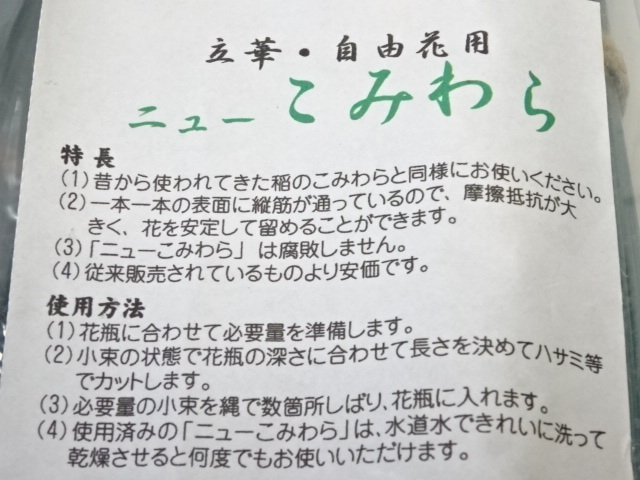 立華・自由花用
ニューこみわら
特長
(1)昔から使われてきた稲のこみわらと同様にお使いください。
(2)一本一本の表面に縦筋が通っているので、摩擦抵抗が大
きく、花を安定して留めることができます。
(3)「ニューこみわら」は腐敗しません。
(4)従来販売されているものより安価です。
使用方法
(1)花瓶に合わせて必要量を準備します。
(2)小束の状態で花瓶の深さに合わせて長さを決めてハサミ等
でカットします。
(3)必要量の小束を縄で数箇所しばり、花瓶に入れます。
(4)使用済みの「ニューこみわら」は、水道水できれいに洗って
乾燥させると何度でもお使いいただけます。